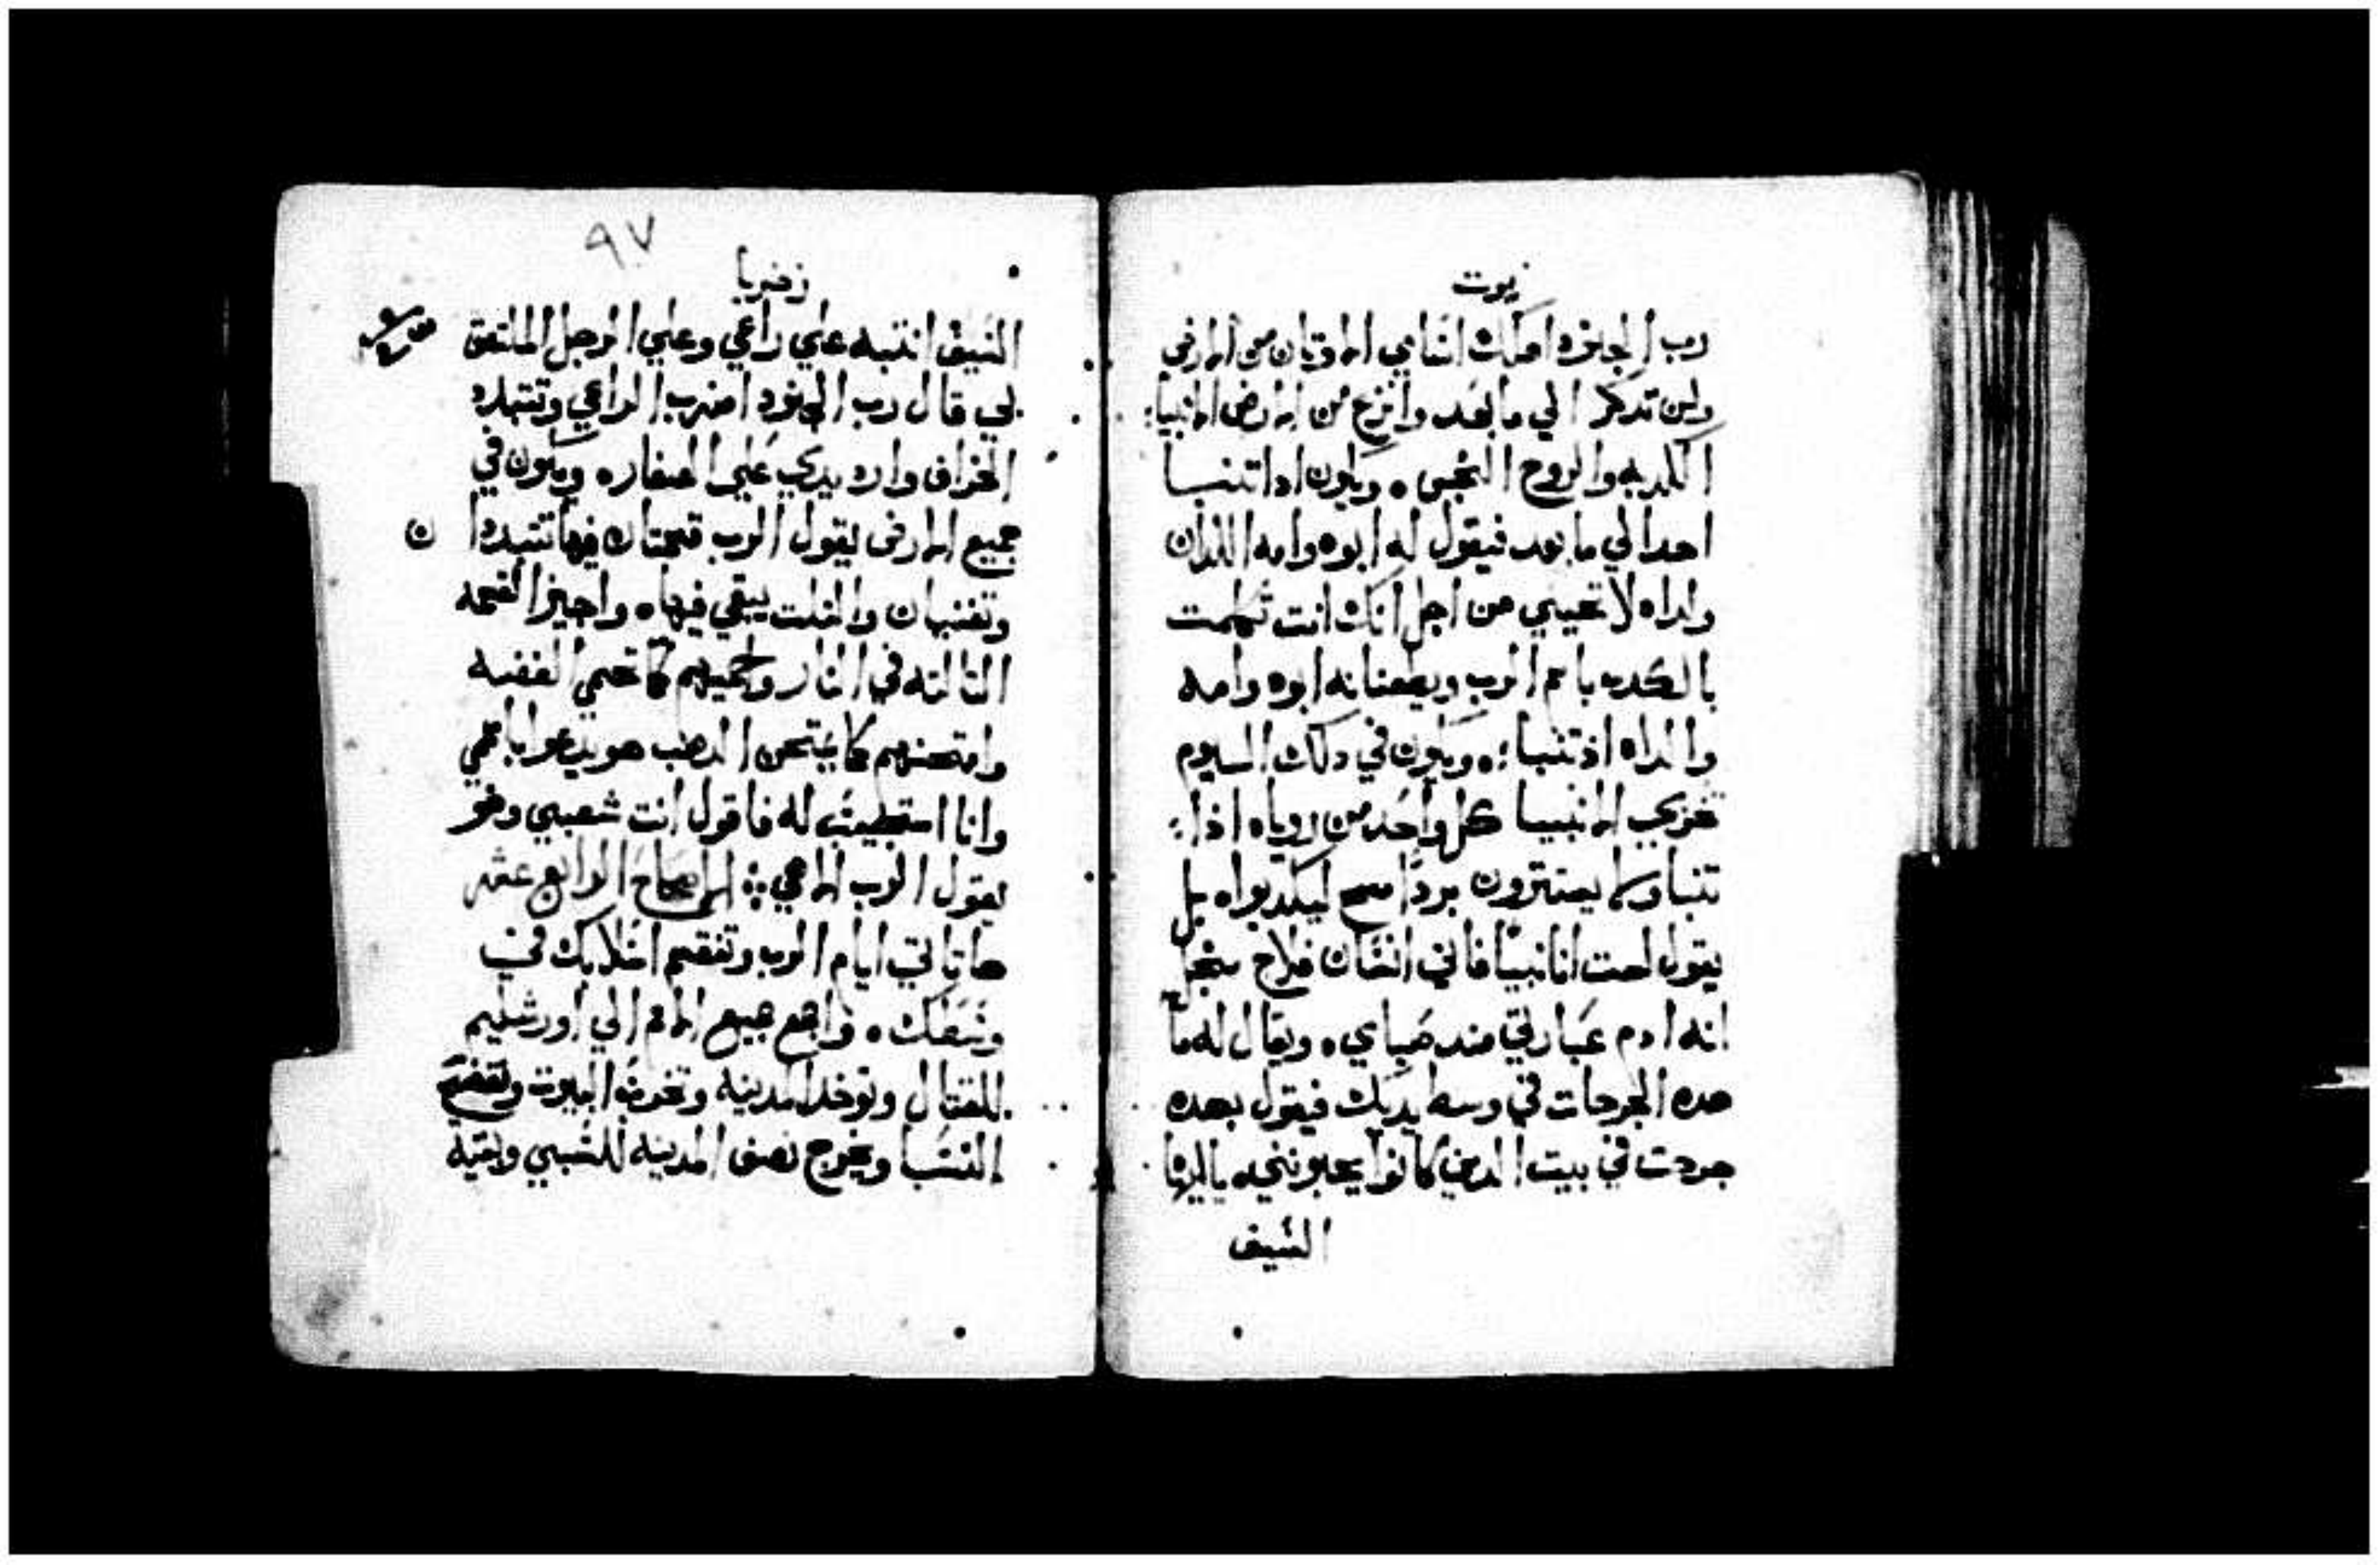 نبوت
رب الجنود اهلك اسامي الاوتان من الارض
ولن تدكر الي ما بعد وانزع من الارض الانبيا
الكدبه والروح النجس ويكون ادا تنبا
احدا الي ما بعد فيقول له ابوه وامه اللذان
ولداه لا تحيي من اجل انك انت تكلمت
بالكدب باسم الرب ويطعنانه ابوه وامه
والداه اذ تنبا ويكون في دلك اليوم
تخزي الانبيا كل واحد من روياه اذا
تنبا ولا يستترون بردا مسح ليكدبواه بل
يقول لست انا نبيا فاني انسان فلاح
انه ادم عبارتي مند صباي ويقال له ما
هده الجرحات في وسط يديك فيقول بهده
جرحت في بيت الدين كانوا يحبونني يا ايها
السيف
٩٧
زخريا
السيف انتبه علي راعي وعلي الرجل الملتصق
بي قال رب الجنود اضرب الراعي وتتبدد
الخراف وارد يدي علي الصغار ويكون في
جميع الارض يقول الرب قسمتان فيها تتبددا
ن
وتفنيان والتلت يبقي فيها واجيز القسمه
التالته في النار واحميهم كما تحمي الفضه
وامتحنهم كما يمتحن الدهب هو يدعوا باسمي
وانا استجيب له فاقول انت شعبي وهو
يقول الرب الاهي الاصحاح الرابع عشر
ها تاتي ايام الرب وتقسم اسلابك في
وسطك واجمع جميع الامم الي اورشليم
للقتال وتوخد المدينه وتخرب البيوت وتفضح
النسا ويخرج نصف المدينه للسبي وبقية